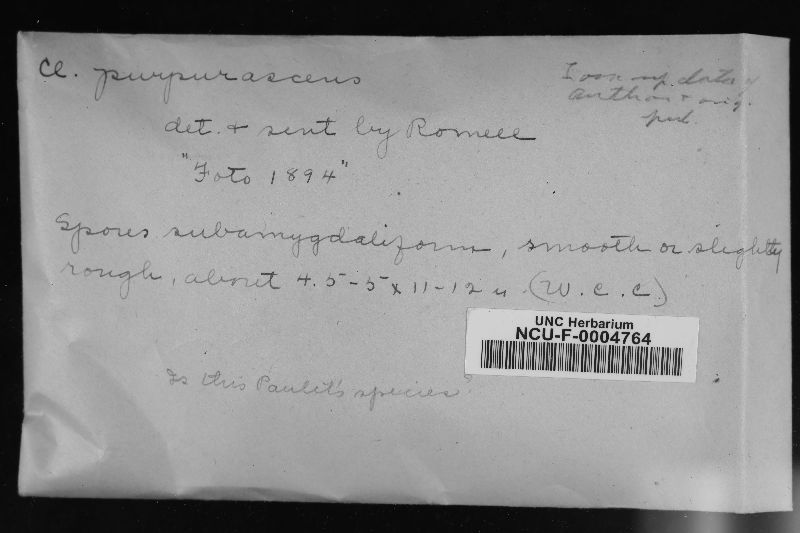 Cl. purpurascens
data &
author & orig.
pub.
det. + sent by Romell
"Foto 1894"
Spores subamygdaliform, smooth or slightly
rough, about 4.5-5 x 11-12 u (W.C.C.)
UNC Herbarium
NCU-F-0004764
Is this Paulet's species?